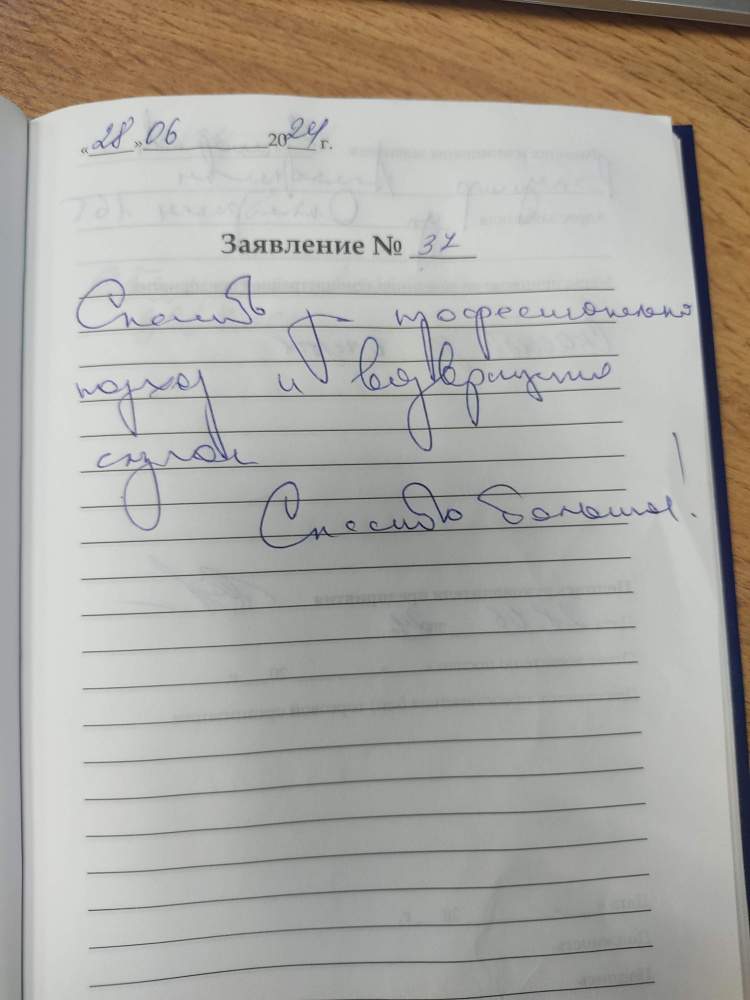 «28» 06 2024 г.
Заявление № 37
Спасибо за профессиональн
подход и возвращение
слуха
Спасибо большое!